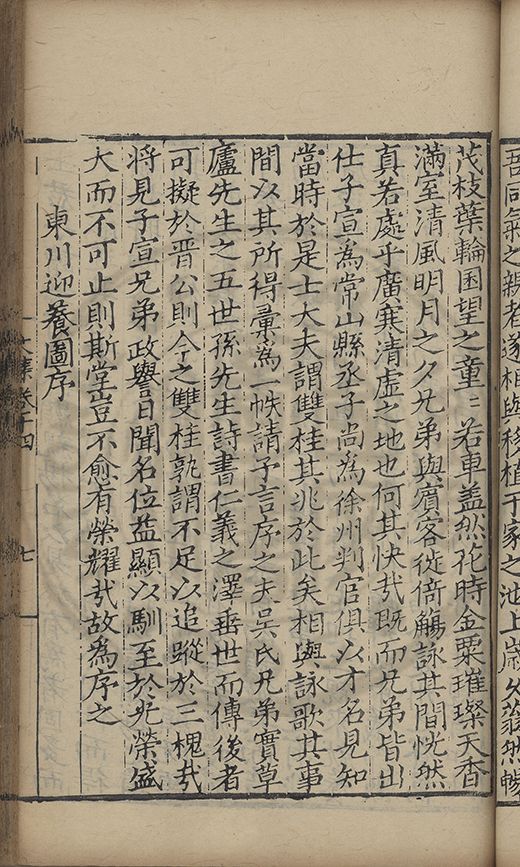 吾同氣之親者遂相與移植于家之池上歲久蓊然暢
茂枝葉輪囷望之童〻若車蓋然花時金粟璀璨天香
滿室清風明月之夕兄弟與賓客徙倚觴詠其間恍然
真若處乎廣寒清虛之地也何其快㦲既而兄弟皆出
仕子宣為常山縣丞子尚為徐州判官俱以才名見知
當時於是士大夫謂雙桂其兆於此矣相與詠歌其事
間以其所得彚為一帙請予言序之夫吳氏兄弟實草
廬先生之五世孫先生詩書仁義之澤垂世而傳後者
可擬於晋公則今之雙桂孰謂不足以追蹤於三槐㦲
将見子宣兄弟政譽日聞名位益顯以馴至於光榮盛
大而不可止則斯堂豈不愈有榮耀㦲故為序之
東川迎養圖序
文集卷十四
七